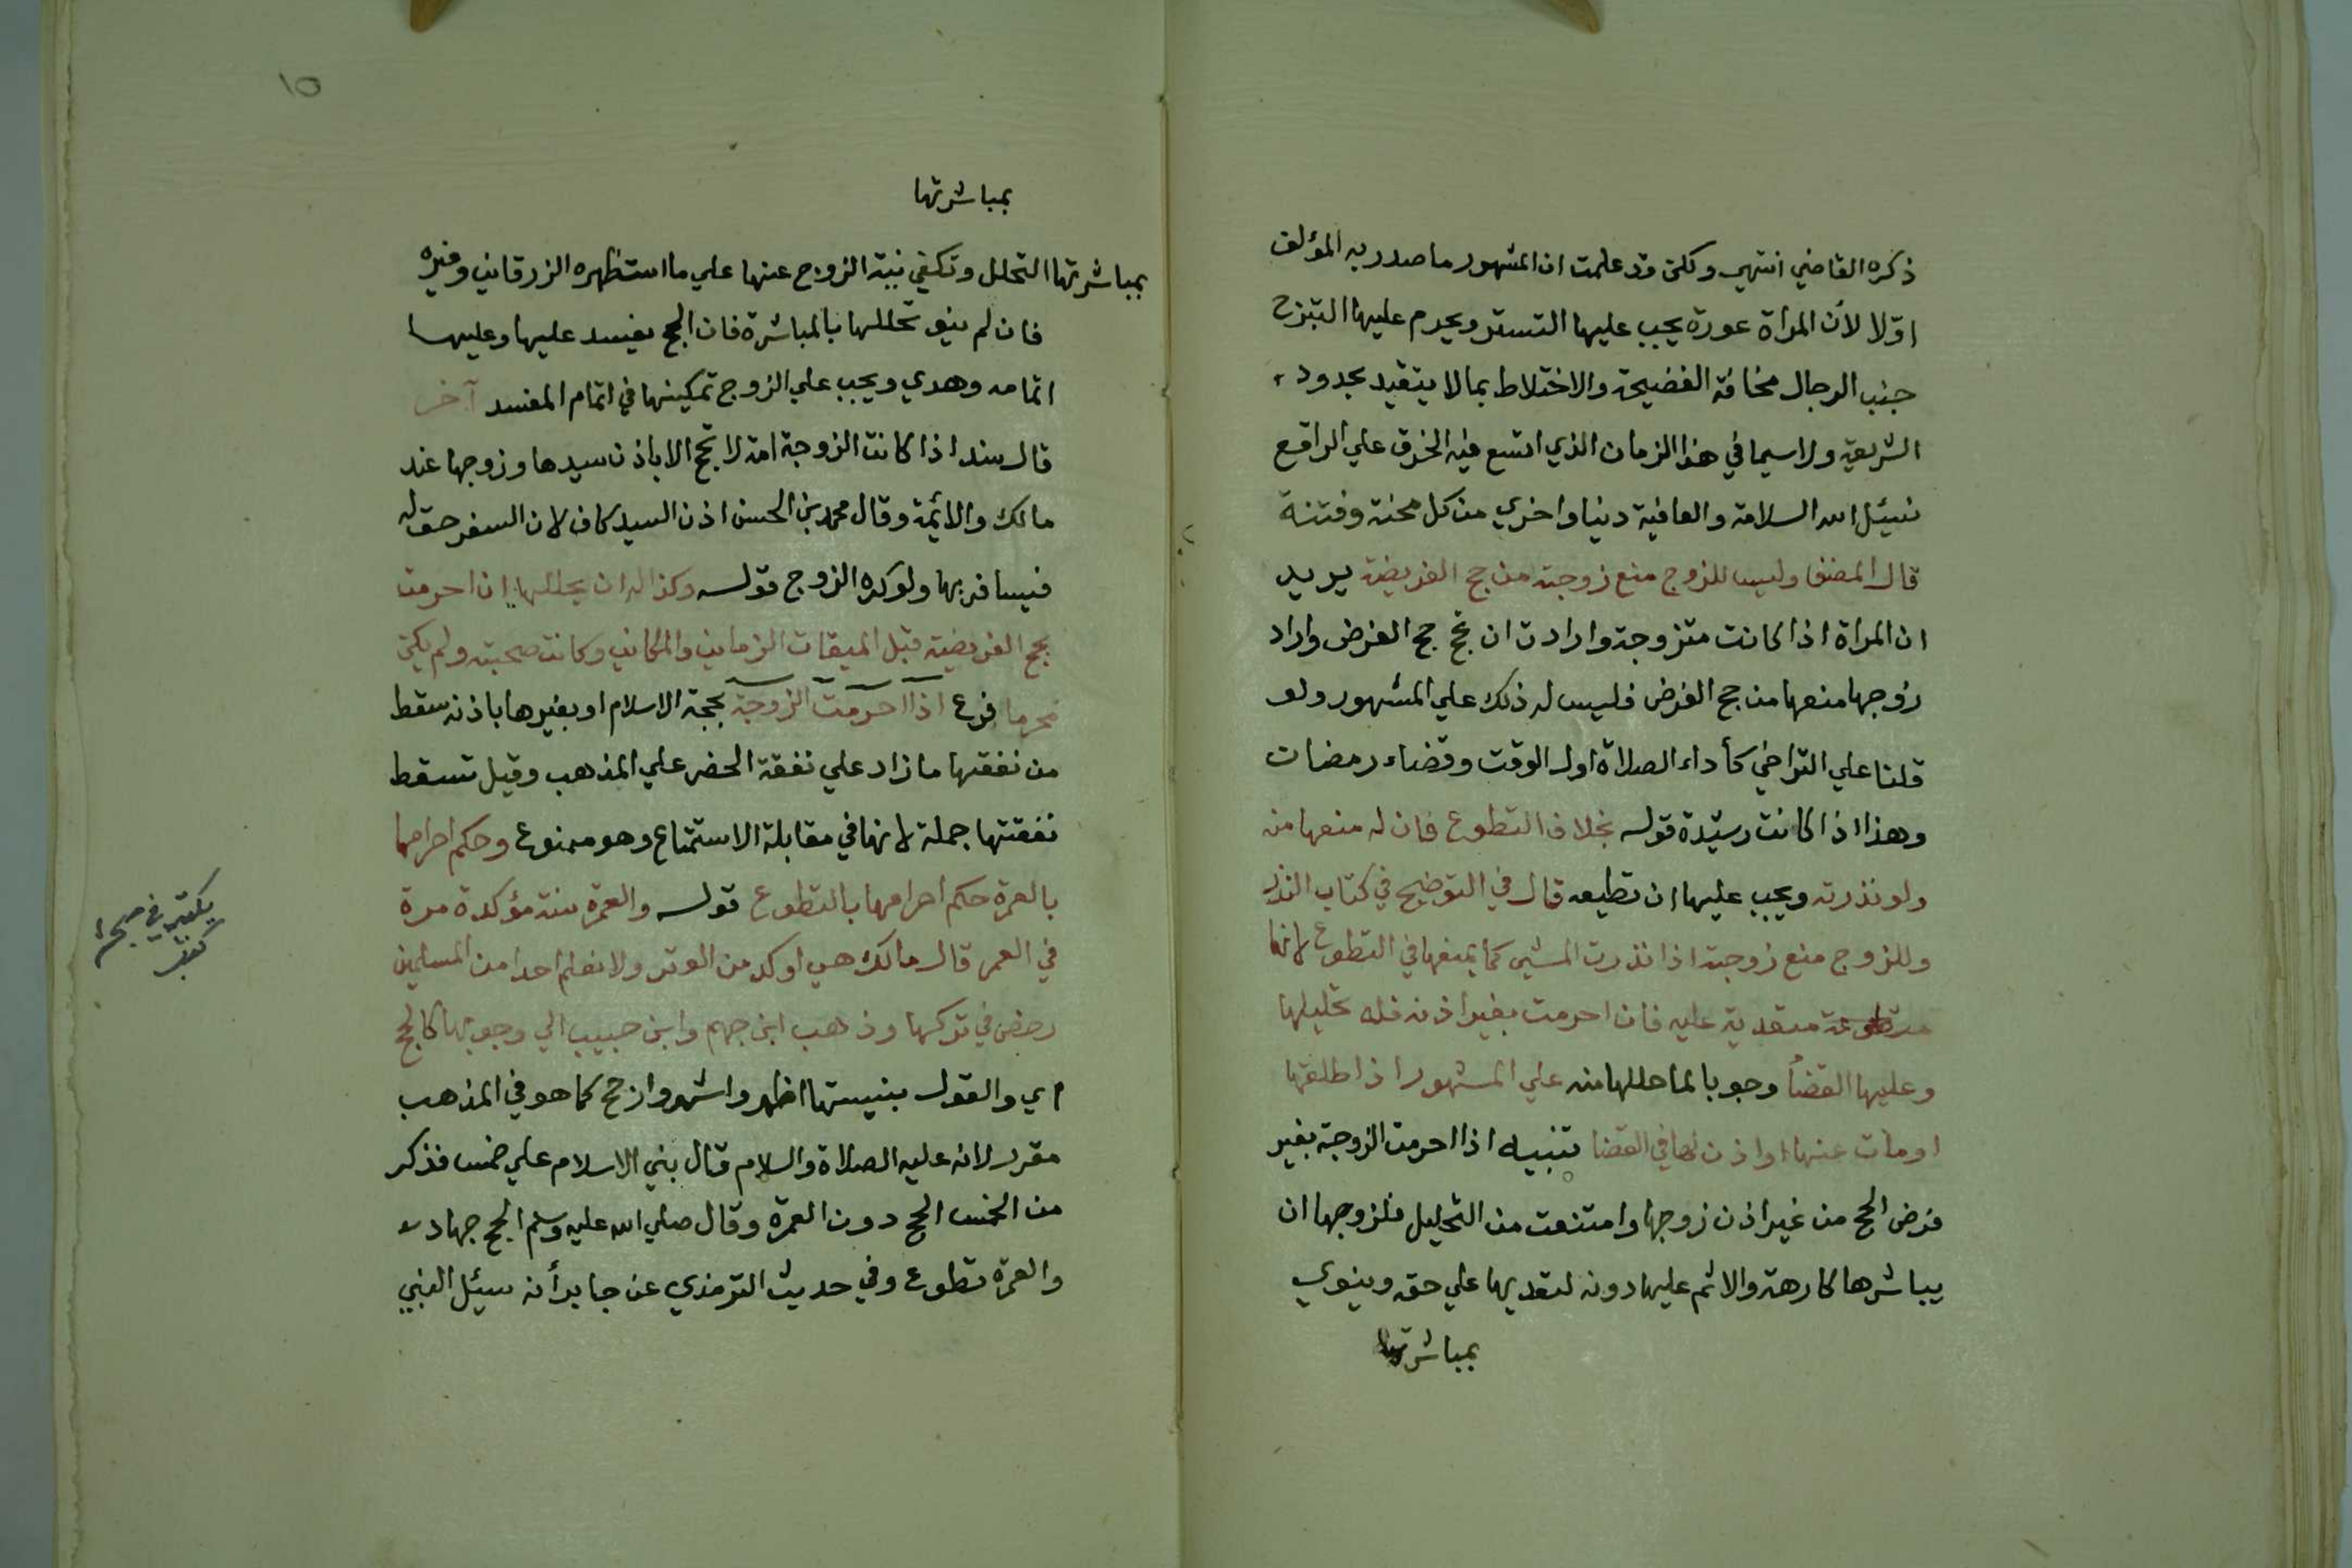 ذكره القاضي انتهى ولكن قد علمت ان المشهور ما صدر به المؤلف
اوّلا لأن المراة عورة يجب عليها التستر ويحرم عليها التبرج
جنب الرجال مخافة الفضيحة والاختلاط بما لا يتقيد بحدود
الشريعة ولاسيما في هذا الزمان الذي اتسع فيه الخرق علي الراقع
نسئل الله السلامة والعافية دنيا واخري من كل محنة وفتنة
قال المصنف وليس للزوج منع زوجته من حج الفريضة يريد
ان المراة اذا كانت متزوجة وارادت ان تحج حج الفرض واراد
زوجها منعها من حج الفرض فليس له ذلك علي المشهور ولو
قلنا علي التراخي كأداء الصلاة اول الوقت وقضاء رمضان
وهذا اذا كانت رشيدة قوله بخلاف التطوع فان له منعها منه
ولو نذرته ويجب عليها ان تطيعه قال في التوضيح في كتاب النذر
وللزوج منع زوجته اذا نذرت المشي كما يمنعها في التطوع لانها
متطوعة متعدية عليه فان احرمت بغير اذنه فله تحليلها
وعليها القضأ وجوبا لما حللها منه علي المشهور اذا طلقها
او مات عنها او اذن لها في القضا تنبيه اذا احرمت الزوجة بغير
فرض الحج من غير اذن زوجها وامتنعت من التحليل فلزوجها ان
يباشرها كارهة والاثم عليها دونه لتعديها علي حقه وينوي
بمباشرتها
١٥
بمباشرتها
بمباشرتها التحلل وتكفي نية الزوج عنها علي ما استظهره الزرقاني وغيره
فان لم ينو تحللها بالمباشرة فان الحج يفسد عليها وعليها
اتمامه وهدي ويجب علي الزوج تمكينها في اتمام المفسد آخر
قال سند اذا كانت الزوجة امة لا تحج الا باذن سيدها وزوجها عند
مالك والائمة وقال محمد بن الحسن اذن السيد كاف لان السفر حق له
فيسافر بها ولو كره الزوج قوله وكذا له ان يحللها ان احرمت
بحج الفريضة قبل الميقات الزماني والمكاني وكانت صحبته ولم يكن
محرما فرع اذا احرمت الزوجة بحجة الاسلام او بغيرها باذنه سقط
من نفقتها ما زاد علي نفقة الحضر علي المذهب وقيل تسقط
نفقتها جملة لانها في مقابلة الاستمتاع وهو ممنوع وحكم احرامها
بالعمرة حكم احرامها بالتطوع قوله والعمرة سنة مؤكدة مرة
في العمر قال مالك هي اوكد من الوتر ولا نعلم احدا من المسلمين
رخص في تركها وذهب ابن جهم وابن حبيب الي وجوبها كالحج
اي والقول بسنيتها اظهر واشهر وارجح كما هو في المذهب
مقرر لانه عليه الصلاة والسلام قال بني الاسلام علي خمس فذكر
من الخمس الحج دون العمرة وقال صلي الله عليه وسلم الحج جهاد
والعمرة تطوع وفي حديث الترمذي عن جابر أنه سئل النبي